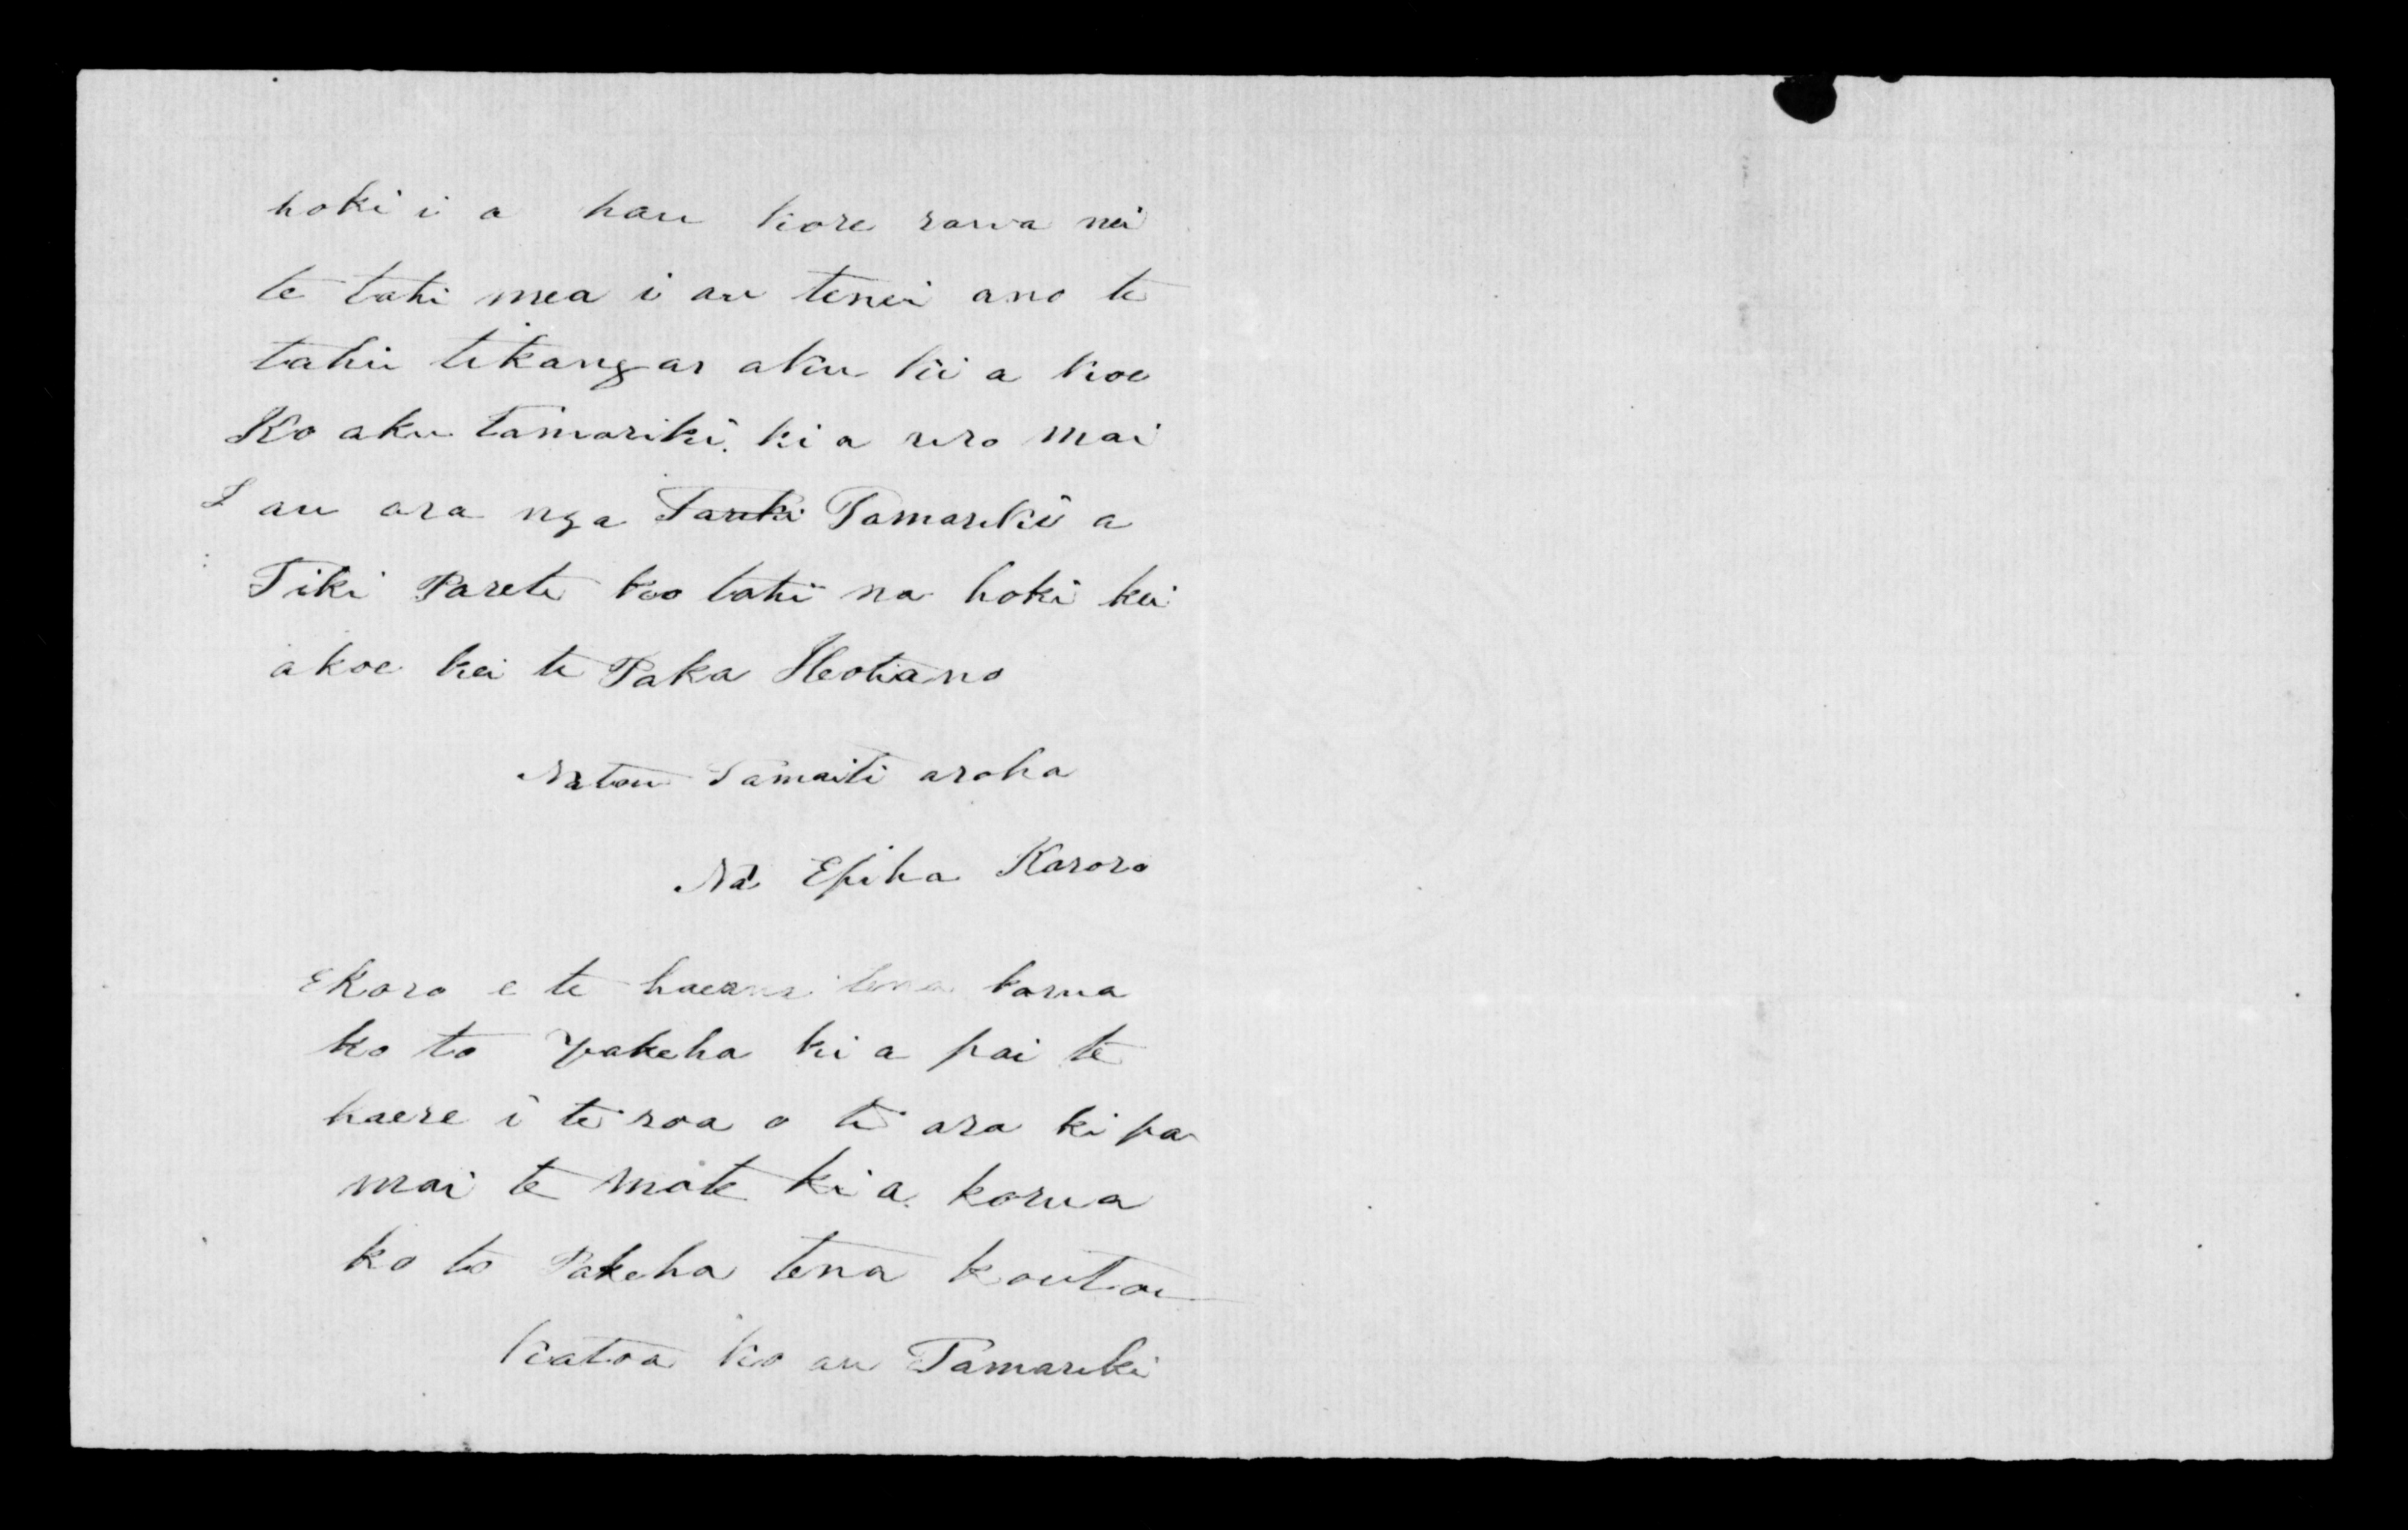 hoki i a hau kore rawa nei
te tahi mea i au tenei ano te
tahi tikanga aku ki a koe
Ko aku tamariki ki a uro mai
I au ara nga Tariki Tamariki a
Tiki Parete koo tahi na hoki kei
a koe kei te Paka Heoti ano
Na tou Tamaiti aroha
Na Epiha Karoro
E Koro e te haeana tena korua
ko to pakeha ki a pai te
haere i te roa o te ara ki pa
mai te mate ki a korua
ko to Pakeha tena koutou
katoa ko au Tamariki